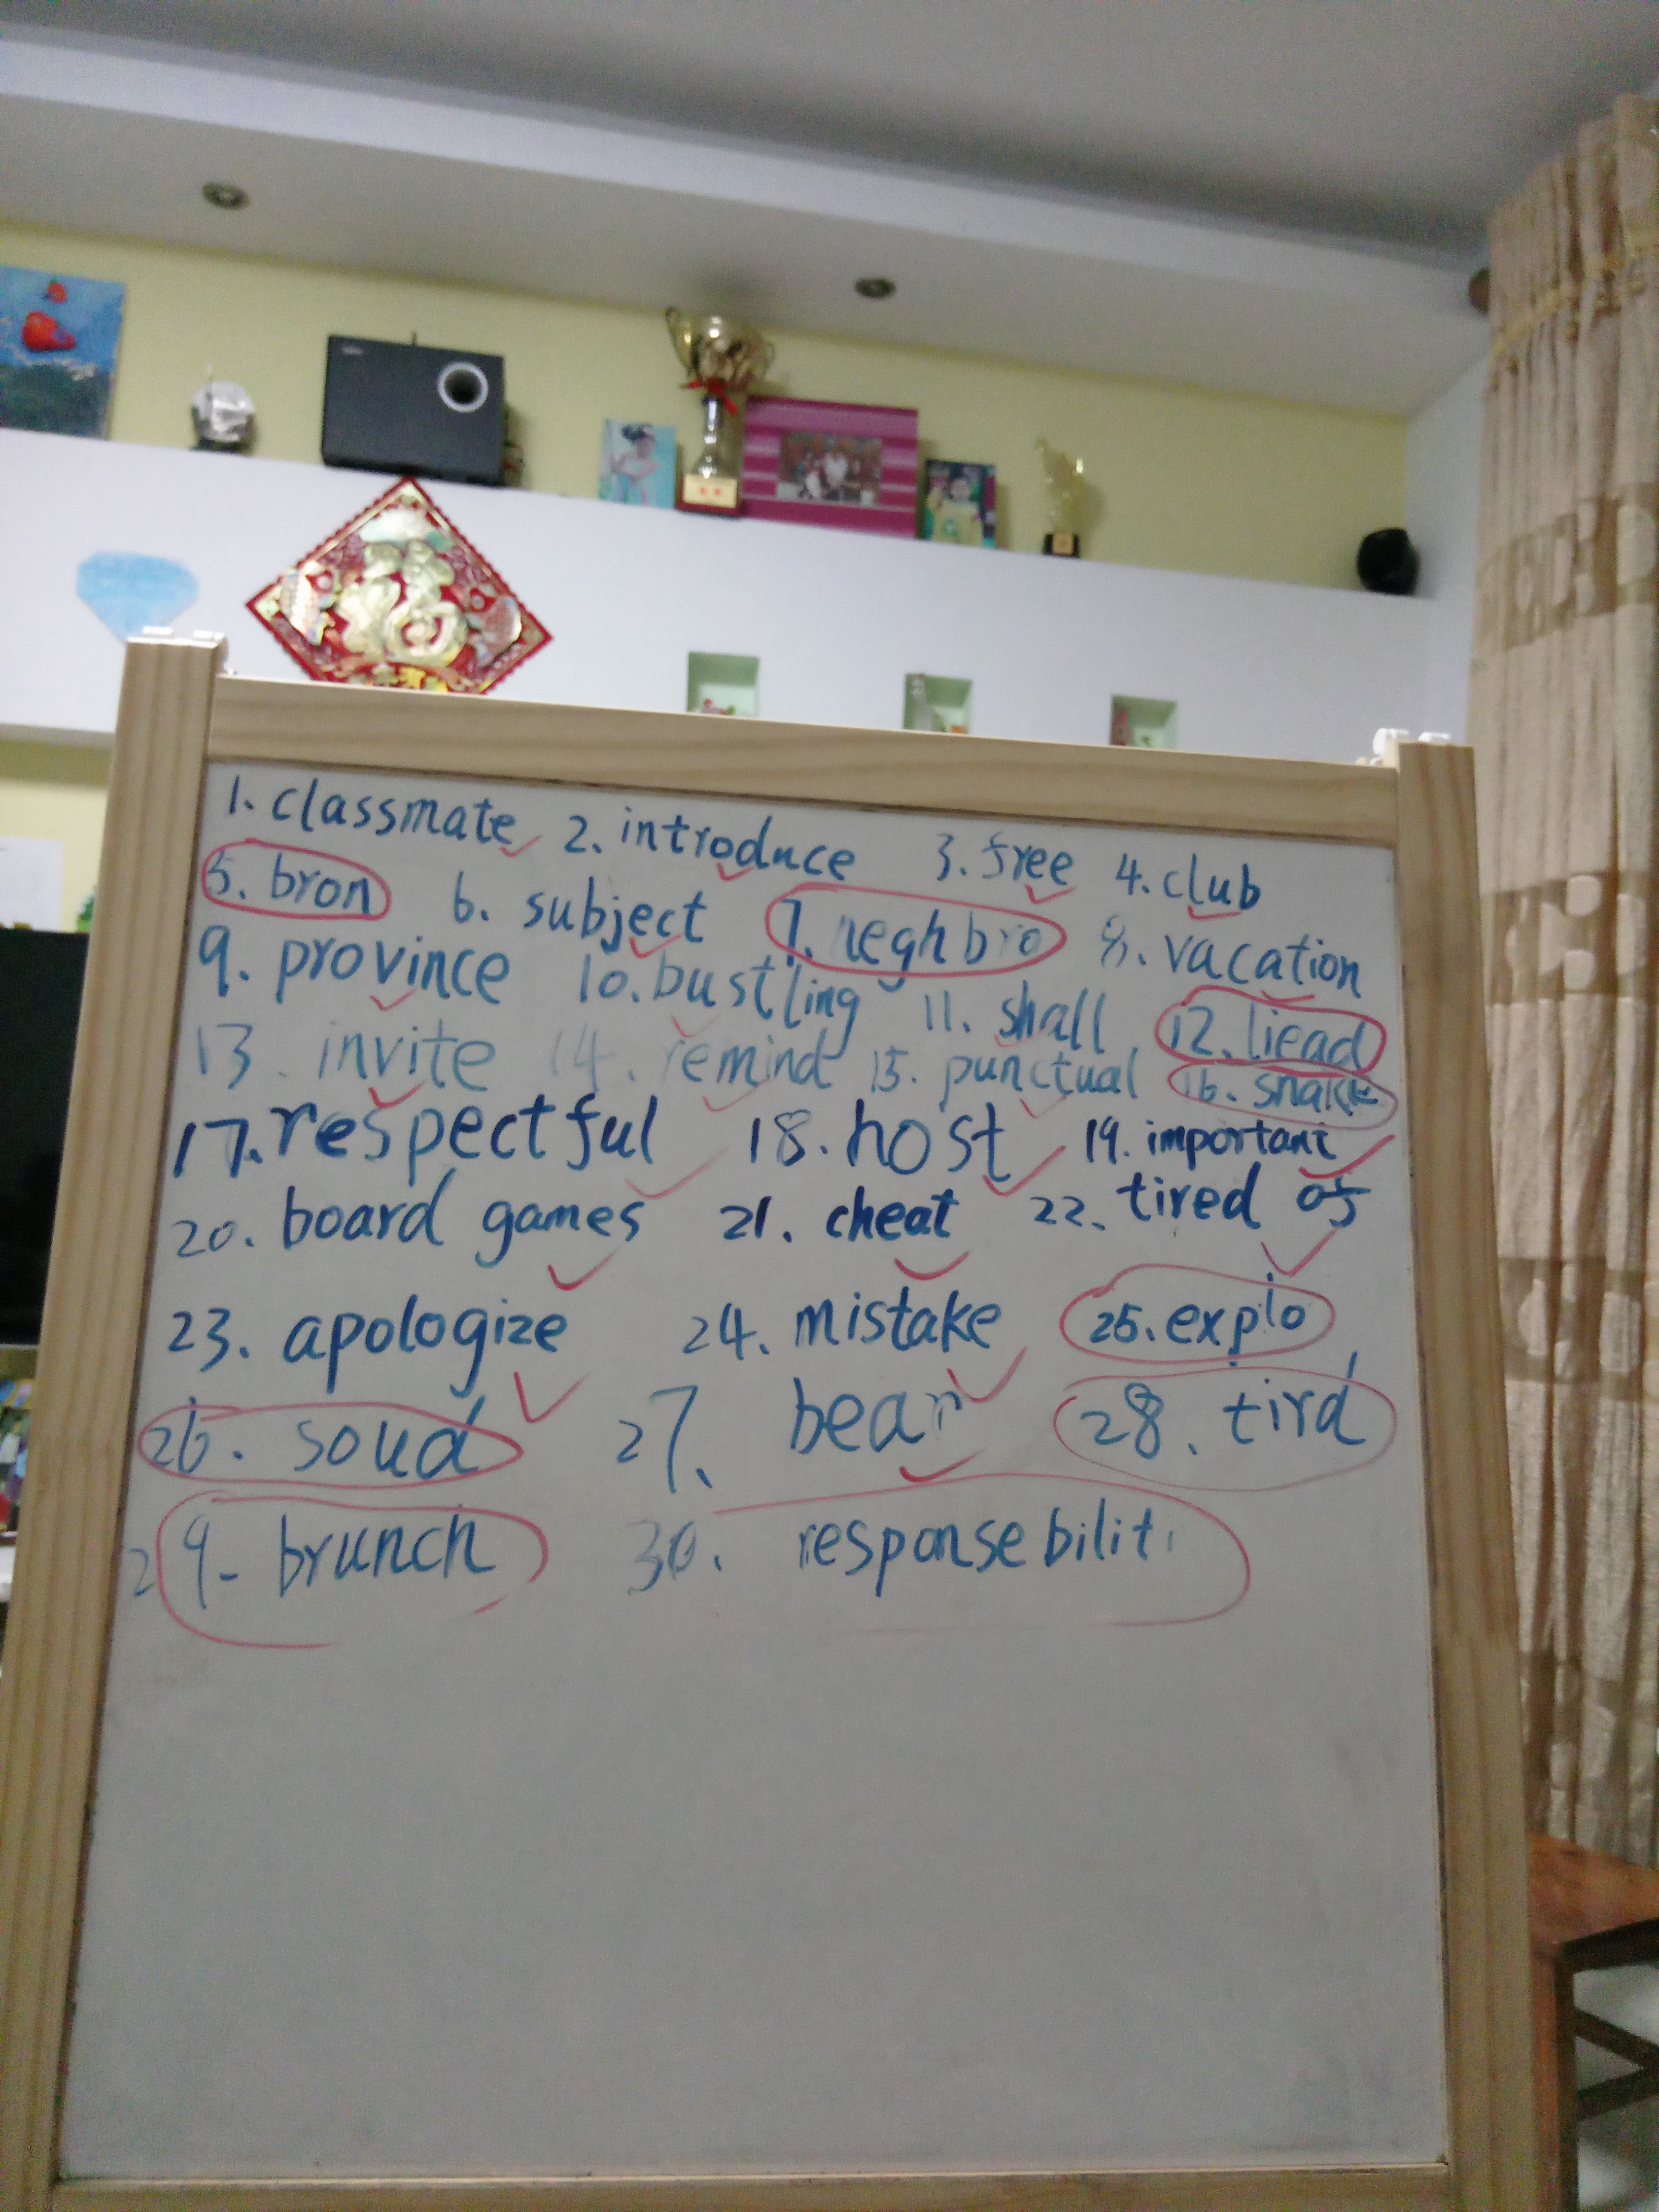 福
1. classmate 2. introduce 3. free 4. club
5. bron 6. subject 7. neghbro 8. vacation
9. province 10. bustling 11. shall 12. liead
13. invite 14. remind 15. punctual 16. snakk
17. respectful 18. host 19. important
20. board games 21. cheat 22. tired of
23. apologize 24. mistake 25. explo
26. soud 27. bear 28. tird
29. brunch 30. responsebiliti